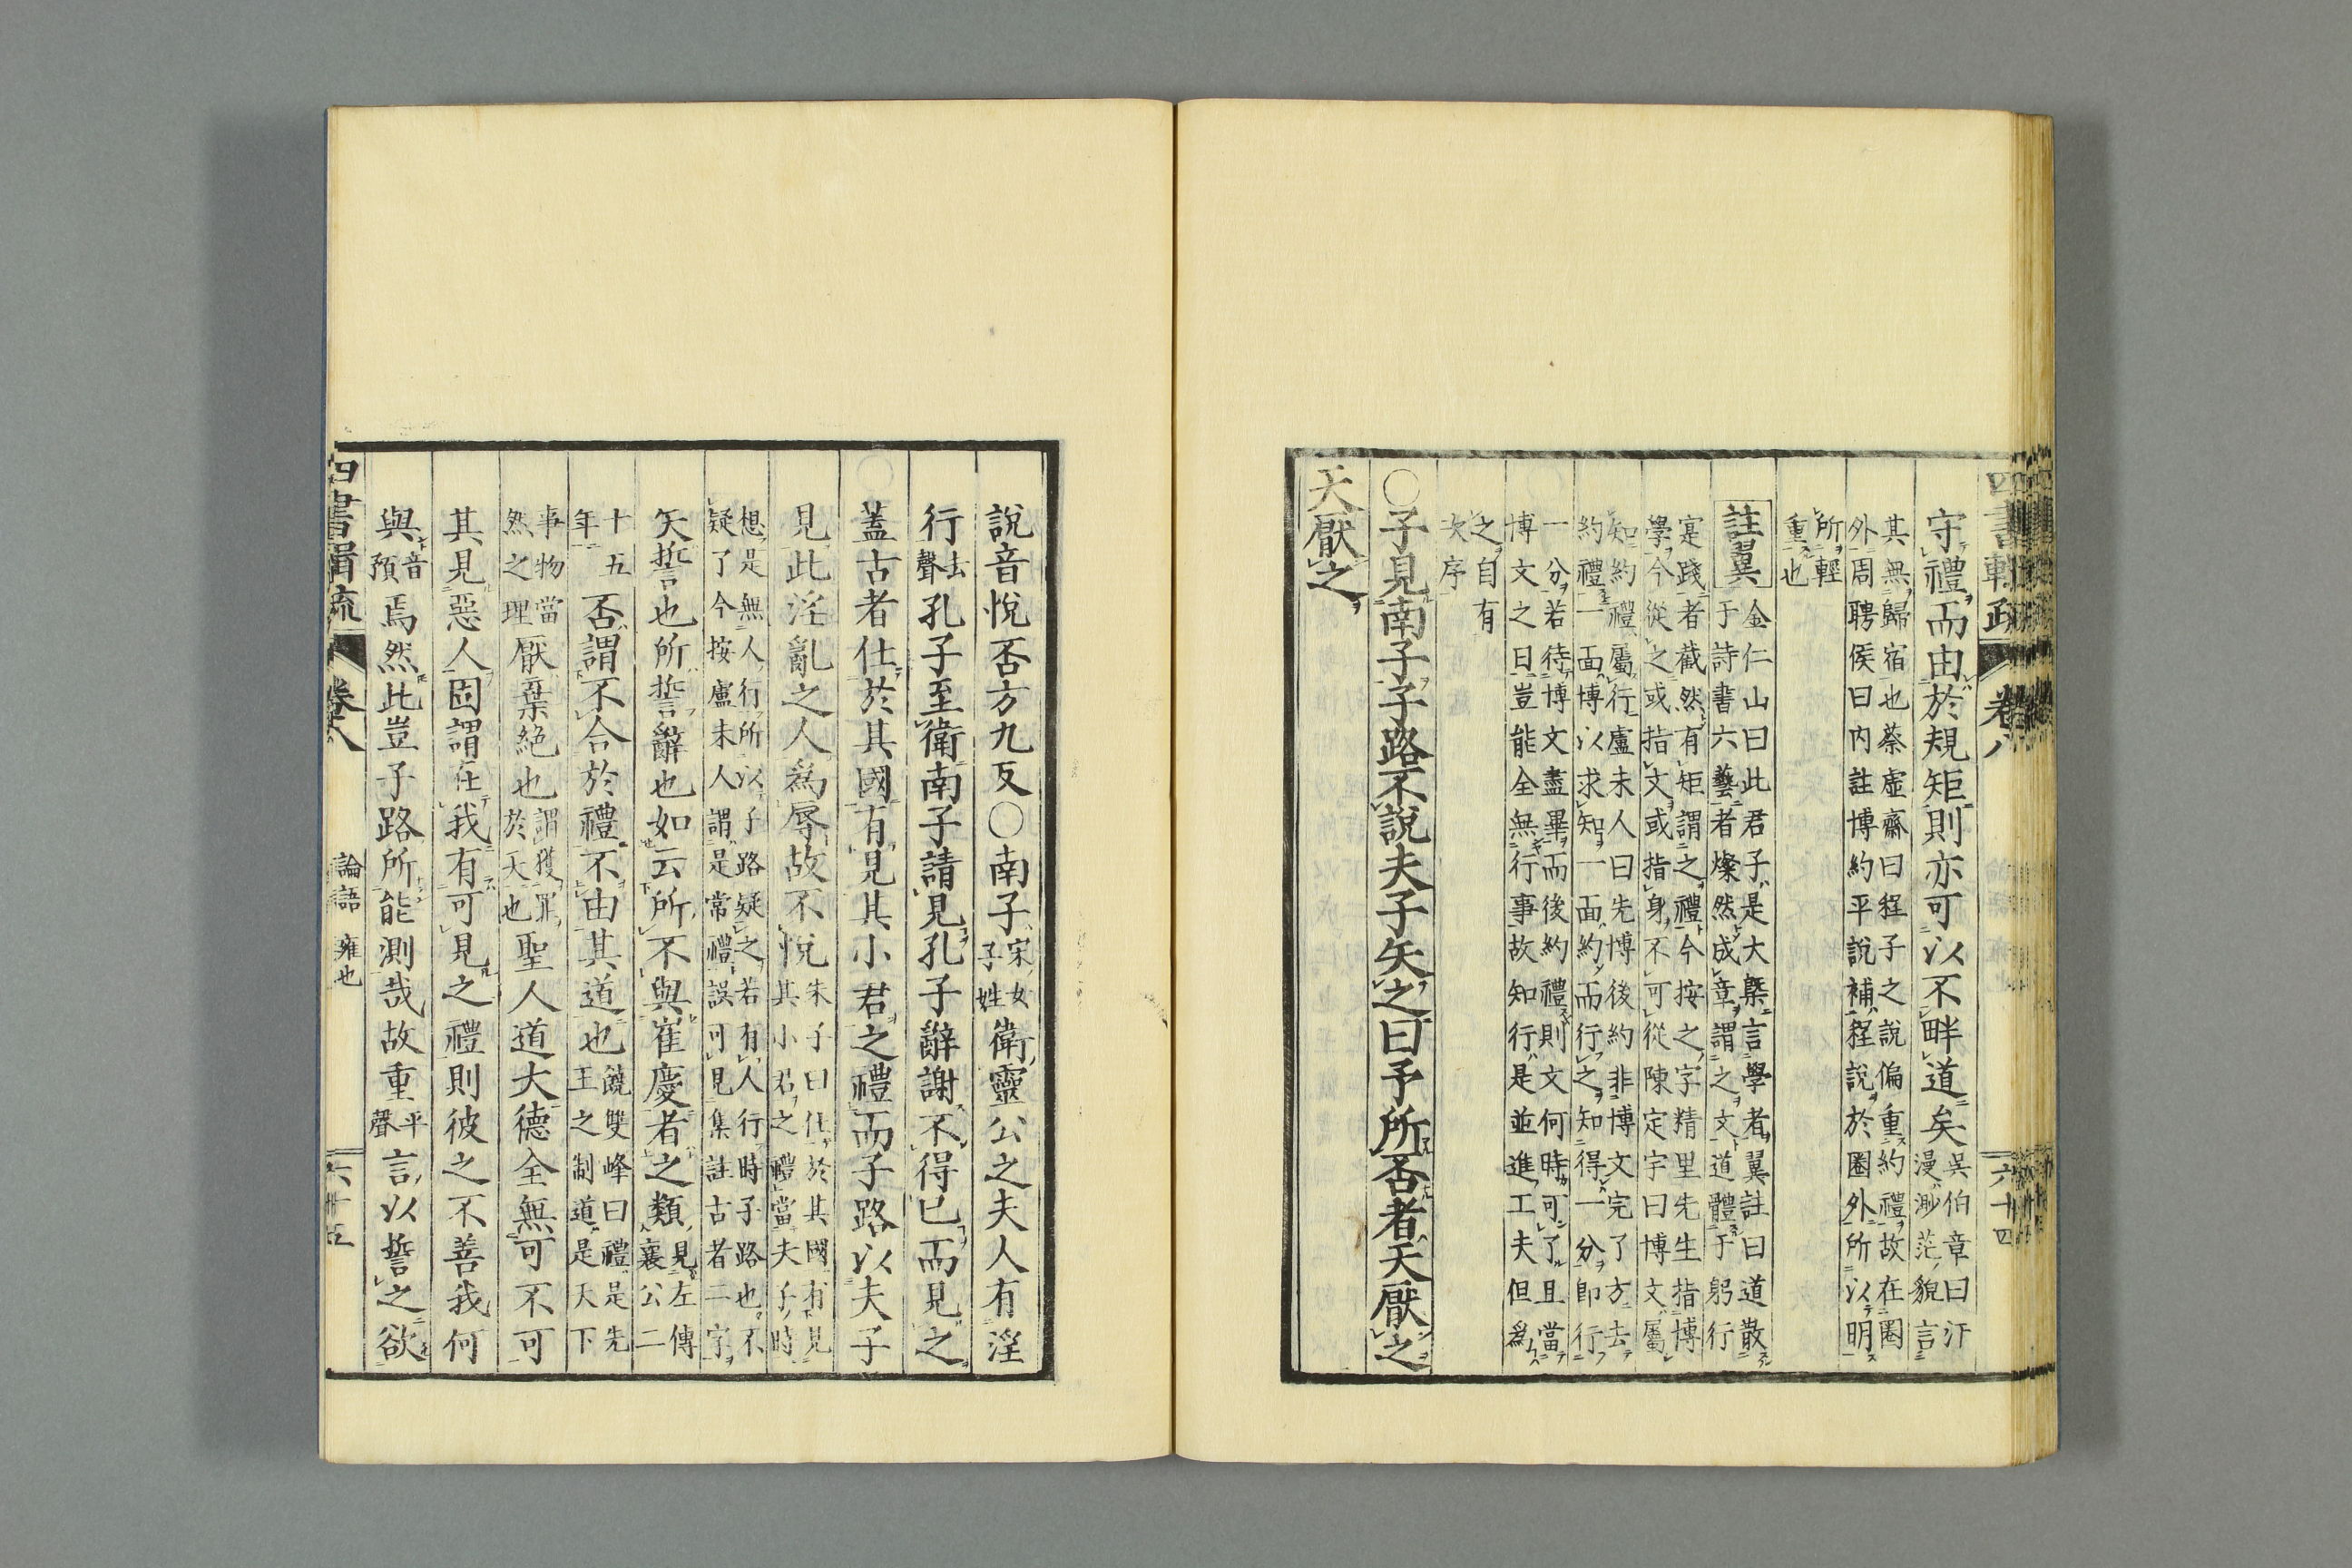 四書輯疏 卷八 六十四
守禮而由於規矩則亦可以不畔道矣吳伯章曰汗
漫渺茫貌言
其無歸宿也蔡虛齋曰程子之說偏重約禮故在圈
外周聘侯曰內註博約平說補程說於圈外所以明
所輕
重也
註翼金仁山曰此君子是大槩言學者翼註曰道散
于詩書六藝者燦然成章謂之文道體于躬行
寔踐者截然有矩謂之禮今按之字精里先生指博
學今從之或指文或指身不可從陳定宇曰博文屬
知約禮屬行盧未人曰先博後約非博文完了方去
約禮一面博以求知一面約而行之知得一分即行
一分若待博文盡畢而後約禮則文何時可了且當
博文之日豈能全無行事故知行是並進工夫但為
之自有
次序
○子見南子子路不說夫子矢之曰予所否者天厭之
天厭之
說音悅否方九反○南子宋女
子姓衛靈公之夫人有淫
行去
聲孔子至衛南子請見孔子辭謝不得已而見之
蓋古者仕於其國有見其小君之禮而子路以夫子
見此淫亂之人為辱故不悅朱子曰仕於其國有見
其小君之禮當夫子時
想是無人行所以子路疑之若有人行時子路也不
疑了今按盧未人謂是常禮誤可見集註古者二字
矢誓也所誓辭也如云所不與崔慶者之類見左傳
襄公二
十五
年否謂不合於禮不由其道也饒雙峰曰禮是先
王之制道是天下
事物當
然之理厭棄絕也謂獲罪
於天也聖人道大德全無可不可
其見惡人固謂在我有可見之禮則彼之不善我何
與音
預焉然此豈子路所能測哉故重平
聲言以誓之欲
四書輯疏 卷八 論語 雍也 六十五